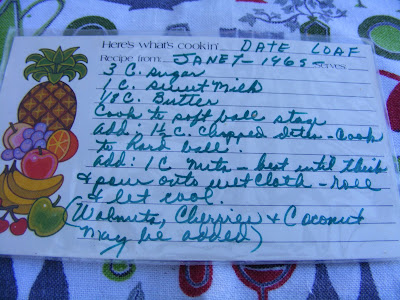 Here's what's cookin' DATE LOAF
Recipe from JANET - 1965 serves
3 C. sugar
1 C. sweet Milk
1/8 C. Butter
Cook to soft ball stage
Add: 1½ C. Chopped dates - Cook
to hard ball.
Add: 1 C Nuts - beat until thick
& pour onto wet Cloth - roll
& let cool.
(Walnuts, Cherries & Coconut
May be added)